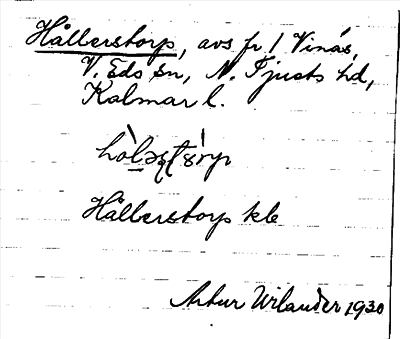 Hållerstorp, avs fr 1 Vinäs,
V. Eds sn, N. Tjusts hd,
Kalmar l.
Hållerstorp kle
Artur Wilander 1930